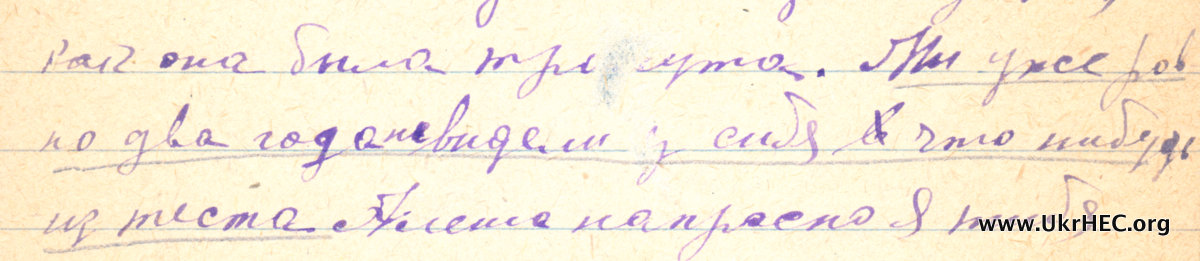 как она была три мужа. Ми уже ров
но два года невидели у себя что нибудь
из теста Алеша напрасно я тибя
www.UkrHEC.org